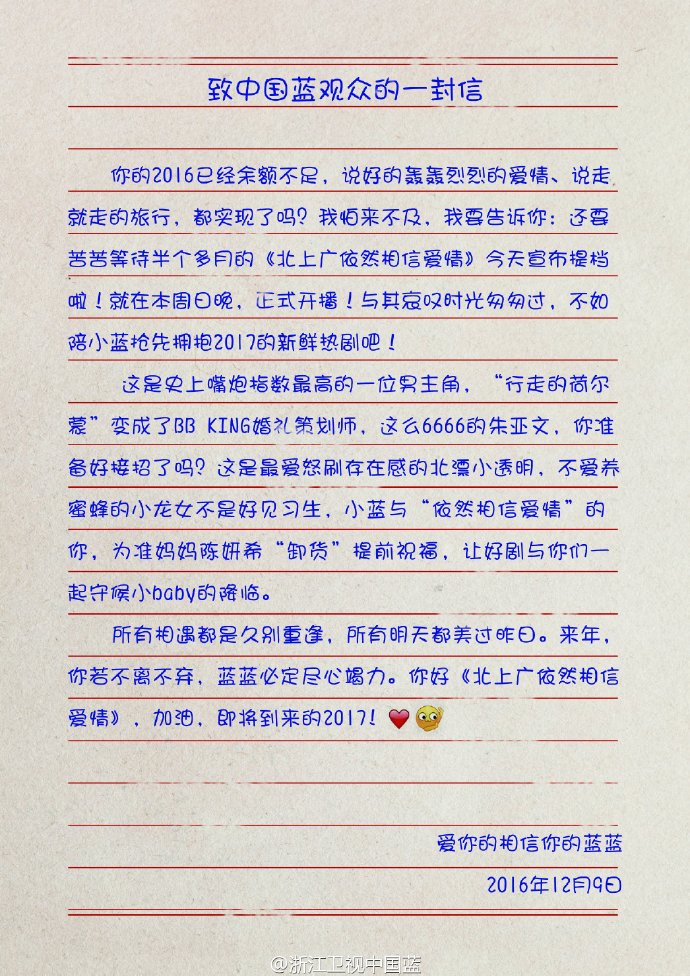 致中国蓝观众的一封信
你的2016已经余额不足，说好的轰轰烈烈的爱情、说走
就走的旅行，都实现了吗？我怕来不及，我要告诉你：还要
苦苦等待半个多月的《北上广依然相信爱情》今天宣布提档
啦！就在本周日晚，正式开播！与其哀叹时光匆匆过，不如
陪小蓝抢先拥抱2017的新鲜热剧吧！
这是史上嘴炮指数最高的一位男主角，“行走的荷尔
蒙”变成了BB KING婚礼策划师，这么6666的朱亚文，你准
备好接招了吗？这是最爱怒刷存在感的北漂小透明，不爱养
蜜蜂的小龙女不是好见习生，小蓝与“依然相信爱情”的
你，为准妈妈陈妍希“卸货”提前祝福，让好剧与你们一
起守候小baby的降临。
所有相遇都是久别重逢，所有明天都美过昨日。来年，
你若不离不弃，蓝蓝必定尽心竭力。你好《北上广依然相信
爱情》，加油，即将到来的2017！
爱你的相信你的蓝蓝
2016年12月9日
@浙江卫视中国蓝